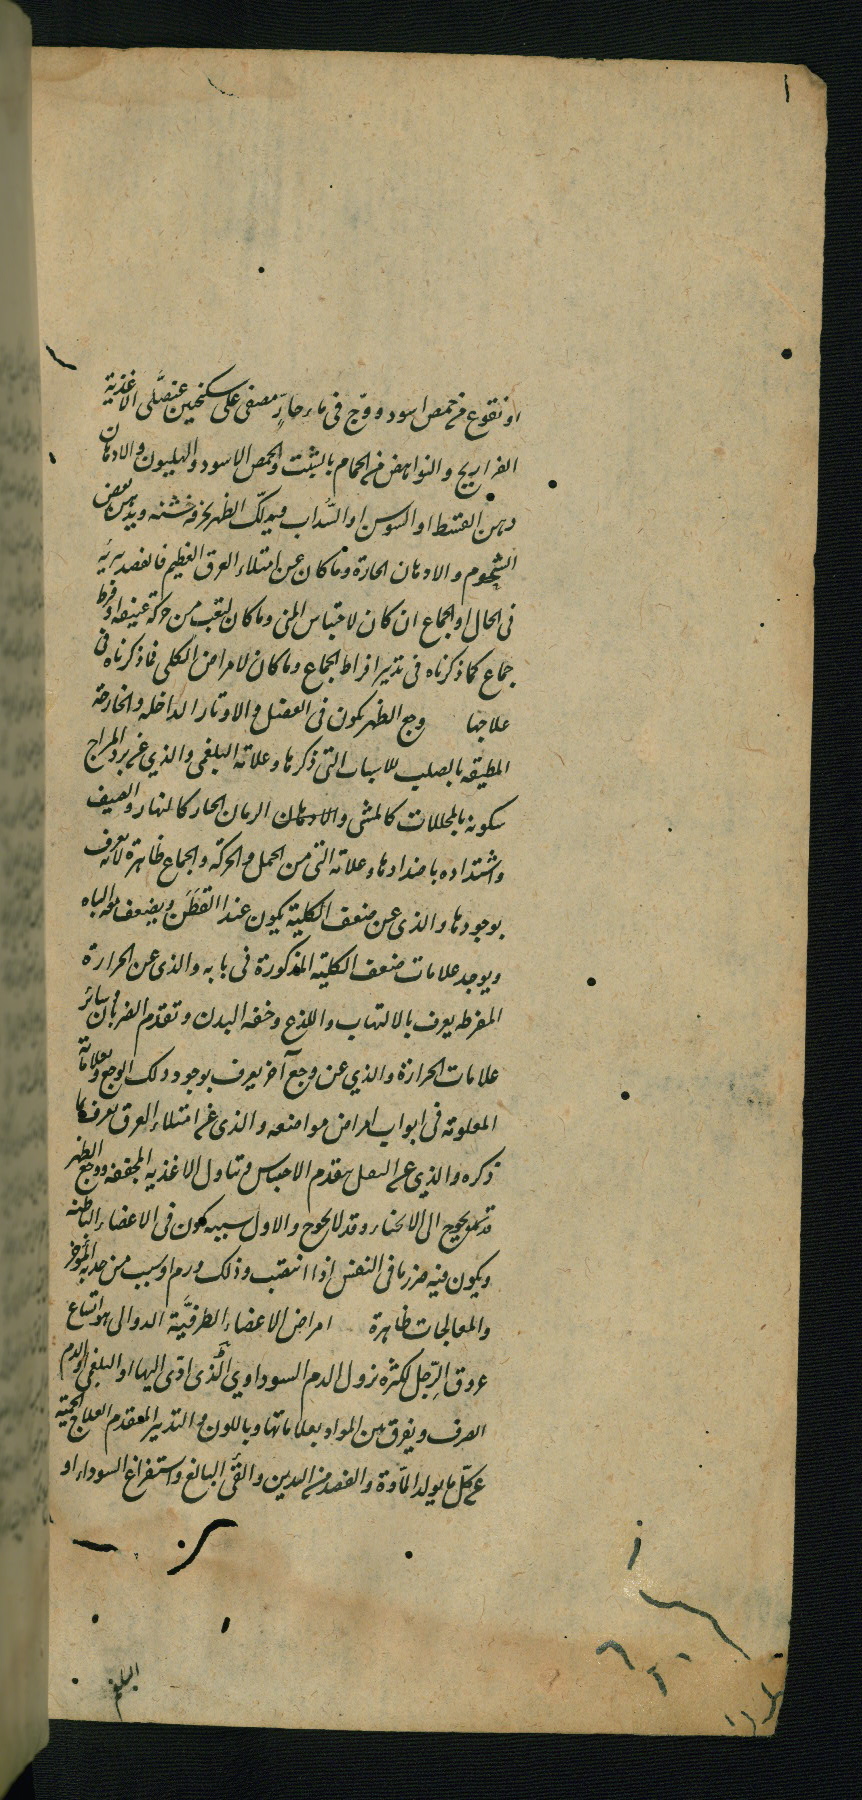 او نقوع من حمص اسود ووج فى ماء حار مصفى على سكنجبين عنصلى الاغذية
الفراريج والنواهض من الحمام بالشبت والحمص الاسود والهليون والادهان
دهن القسط او السوسن او السداب ويدلك الظهر بخرقه خشنه ويدهن ببعض
الشحوم والادهان الحارة وما كان عن امتلاء العرق العظيم فالفصد يبريه
فى الحال او الجماع ان كان لاحتباس المنى وما كان لتعب من حركة عنيفه او فرط
جماع كما ذكرناه فى تدبير افراط الجماع وما كان لامراض الكلى فما ذكرناه فى
علاجها وجع الظهر يكون فى العضل والاوتار الداخله والخارجة
المطيقه بالصلب للاسباب التى ذكرها وعلامة البلغمى والذي عن برد المزاج
سكونه بالمحللات كالمشى والادهان الزمان الحار كالنهار والصيف
واشتداده باضدادها وعلامة التى من الحمل والحركة والجماع ظاهرة لانه يعرف
بوجودها والذى عن ضعف الكلية يكون عند القطن ويضعف معه الباه
ويوجد علامات ضعف الكلية المذكورة فى بابه والذى عن الحرارة
المفرطه يعرف بالالتهاب واللذع وخفه البدن وتقدم الضربان وسائر
علامات الحرارة والذي عن وجع آخر يعرف بوجود ذلك الوجع وبعلاماته
المعلومة فى ابواب امراض مواضعه والذى عن امتلاء العرق يعرف بما
ذكره والذي عن الثفل بتقدم الاحتباس وتناول الاغذيه المجففه ووجع الظهر
قد يحوج الى الانحناء وقد لا يحوج والاول سببه يكون فى الاعضاء الباطنه
ويكون فيه ضرر ما فى النفس اذا انتصب وذلك ورم او سبب من حدبه المؤخر
والمعالجات ظاهرة امراض الاعضاء الطرفيّة الدوالى هو اتساع
عروق الرجل لكثرة نزول الدم السوداوي الذى اوى اليها او البلغمى او الدم
الصرف ويفرق بين المواد بعلاماتها وباللون والتدبير المتقدم العلاج الحمية
عن كل ما يولد المادة والفصد من اليدين والقئ البالغ واستفراغ السوداء او
البلغم